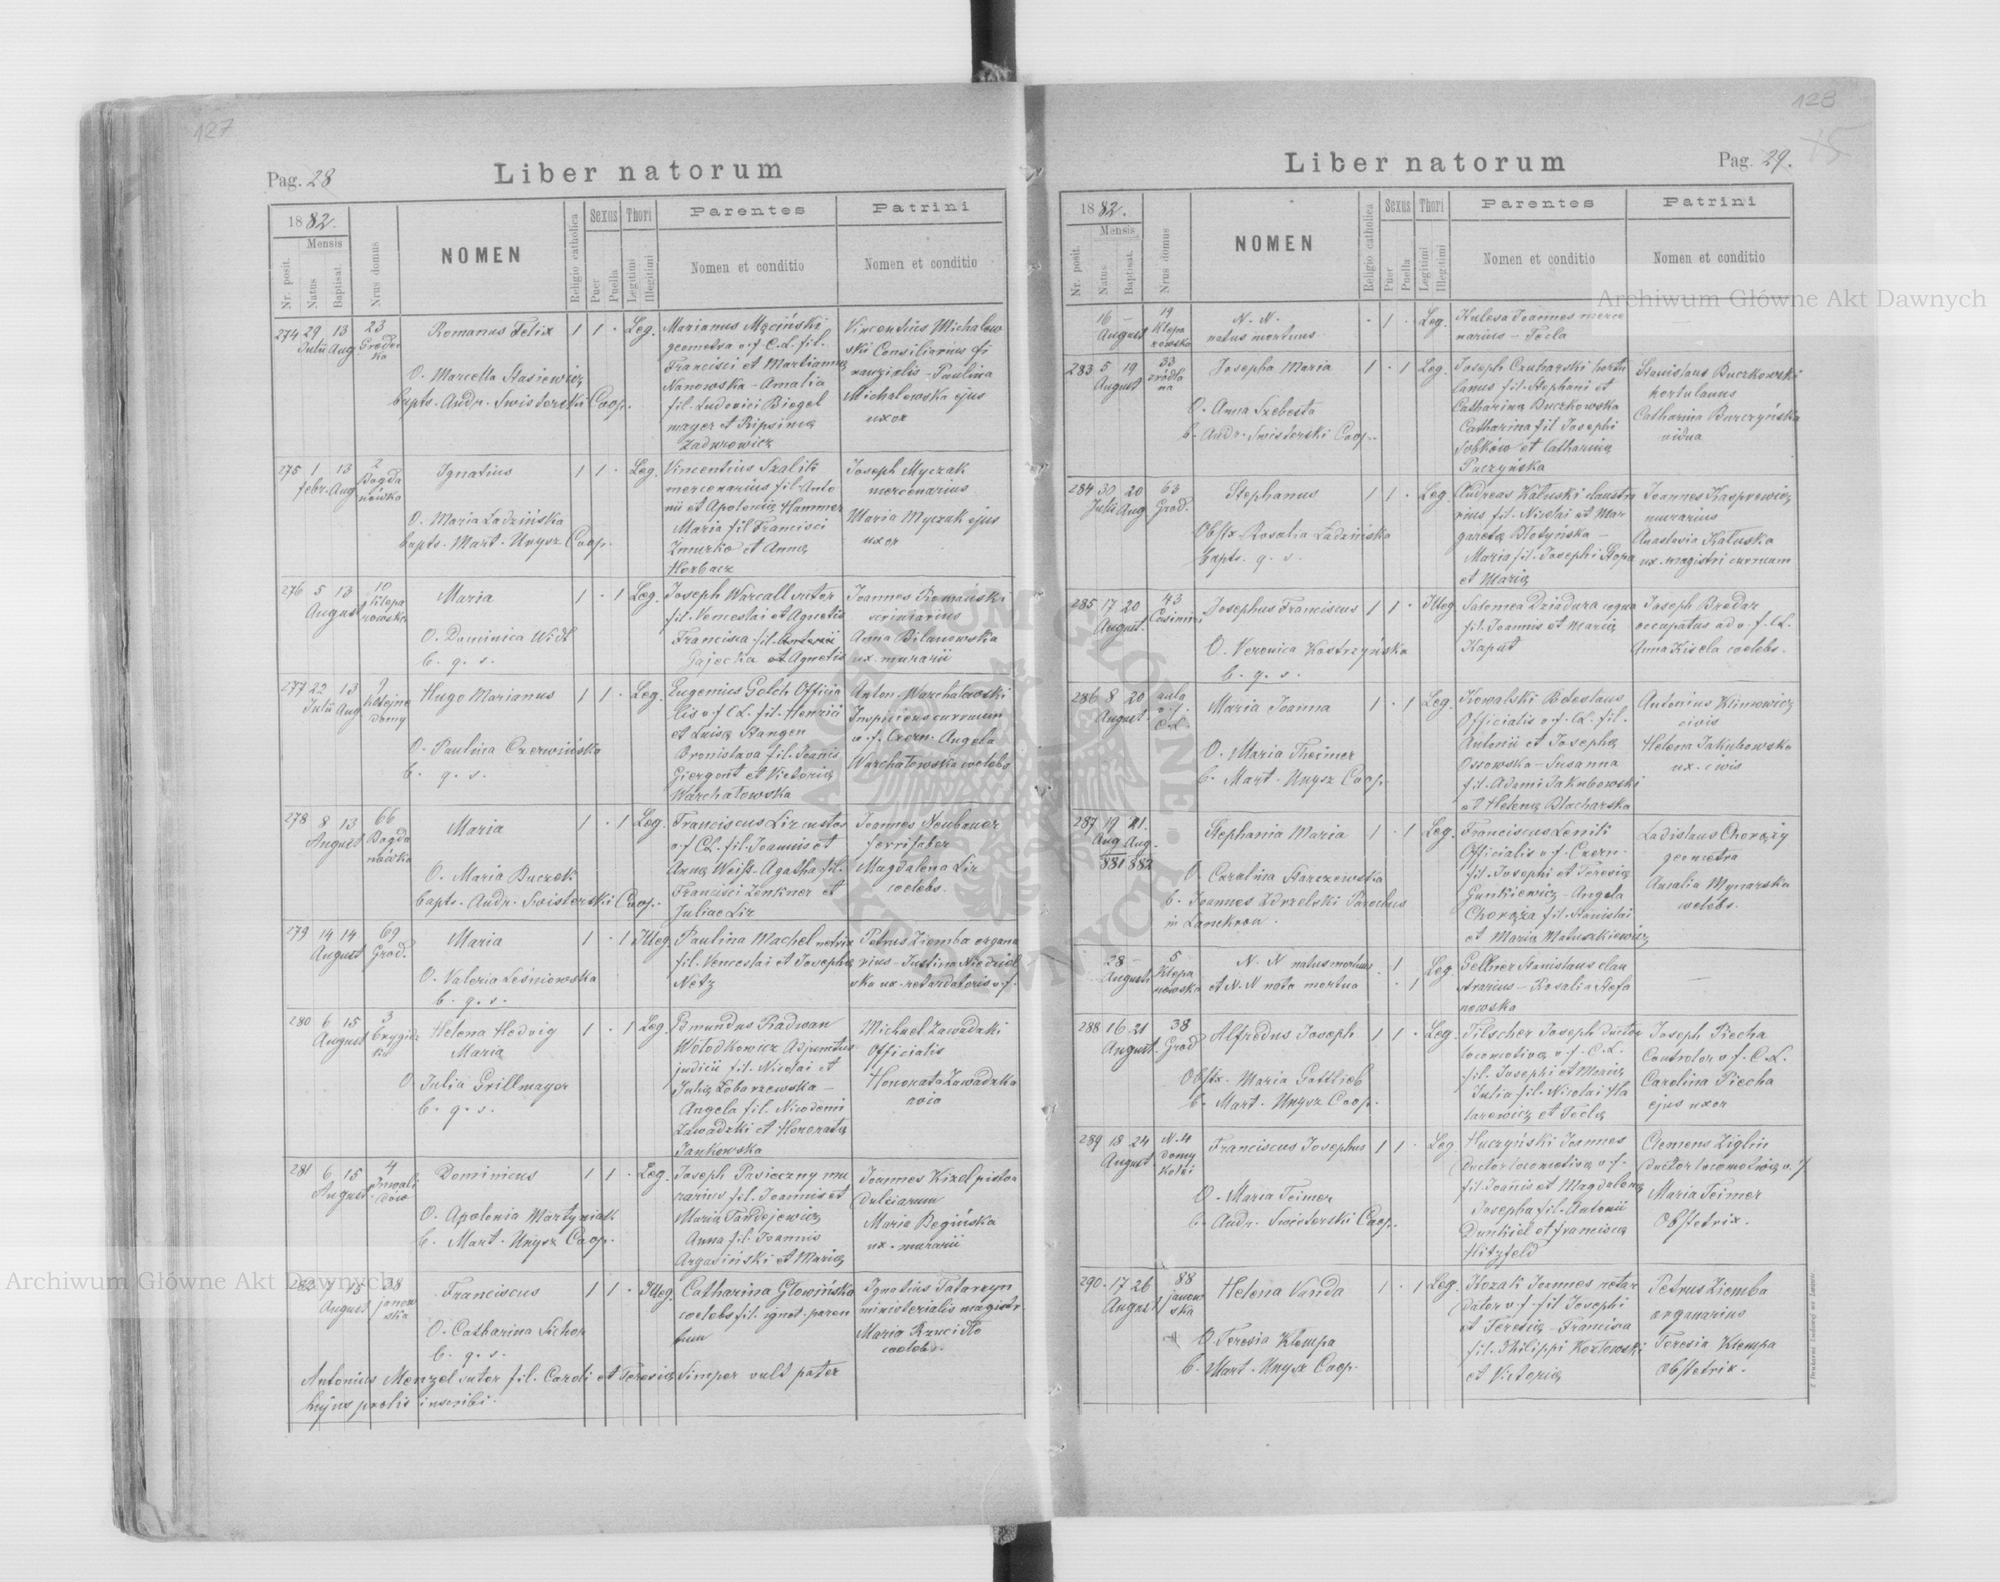 127
Pag. 28
Liber natorum
1882.
Mensis
Nr. posit.
Natus
Baptisat.
Nrus domus
NOMEN
Religio catholica
Sexus
Puer
Puella
Thori
Legitimi
Illegitimi
Parentes
Nomen et conditio
Patrini
Nomen et conditio
274 29 Julii 13 Aug 23 Grodec ka
Romanus Felix 1 1 · Leg.
O. Marcella Stasiewicz
bapts. Andr. Swisterski Coop.
Marianus Męciński
geometra v. f. C. L. fil.
Francisci et Martiannę
Nanowska - Amalia
fil. Ludovici Biegel
mayer et Ripsimę
Zadurowicz
Vincentius Michalew
skii Consiliarius fi
nanzialis - Paulina
Michalewska ejus
uxor
275 1 febr. 13 Aug 2 Bogda nówka
Ignatius 1 1 · Leg.
O. Maria Ladzińska
bapts. Mart. Unysz Coop.
Vincentius Szalik
mercenarius fil. Anto
nii et Apolonię Hammer
Maria fil Francisci
Zmurko et Annę
Horbacz
Joseph Myczak
mercenarius
Maria Myczak ejus
uxor
276 5 13 August 10 Klepa rowska
Maria 1 · 1 Leg.
O. Dominica Widl
b. q. s.
Joseph Warcall sutor
fil. Venceslai et Agnetis
Francisca fil.
Gajecka et Agnetis
Joannes Romański
scriniarius
Anna Bilanowska
ux. murarii
277 22 Julii 13 Aug 9 Kolejne domy
Hugo Marianus 1 1 · Leg.
O. Paulina Czerwińska
b. q. s.
Eugenius Golch Officia
lis v. f. C. L. fil. Henrici
et Luisę Stangen
Bronislava fil. Joānis
Giergont et Victorię
Warchałowska
Anton. Warchałowski
Inspiciens curruum
v. f. Czern. Angela
Warchałowska coelebs
278 8 13 August 66 Bogda nówka
Maria 1 · 1 Leg.
O. Maria Buczek
bapts. Andr. Swisterski Coop.
Franciscus Lir custos
v. f. C. L. fil. Joannis et
Annę Weiss. Agatha fil.
Francisci Zenkner et
Juliae Lir
Joannes Neubauer
ferrifaber
Magdalena Lir
coelebs.
279 14 14 August 69 Grod.
Maria 1 · 1 Illeg.
O. Valeria Leśniowska
b. q. s.
Paulina Machel netrix
fil. Venceslai et Josephę
Netz
Petrus Ziemba organa
rius - Justina Niedziel
ska ux. retardatoris v. f.
280 6 15 August 3 Brygidz ki
Helena Hedvig
Maria 1 · 1 Leg.
O Julia Grillmayer
b. q. s.
Edmundus Radwan
Wołodkowicz Adjunctus
judicii fil. Nicolai et
Julię Łobarzewska -
Angela fil. Nicodemi
Zawadzki et Honoratę
Jankowska
Michael Zawadzki
Officialis
Honorata Zawadzka
avia
281 6 15 August 4 Inwali dów
Dominicus 1 1 · Leg.
O. Apolonia Martyniak
b. Mart. Unysz Coop.
Joseph Pasieczny mu
rarius fil. Joannis et
Marię Tandejewicz
Anna fil. Joannis
Argasiński et Marię
Joannes Kizel pistor
dulciarum
Maria Begińska
ux. murarii
282 7 15 August 38 janow ska
Franciscus 1 1 · Illeg.
O. Catharina Sichor
b. q. s.
Catharina Głowińska
coelebs fil. ignot. paren
tum
Ignatius Tatarcyn
ministerialis magistr
Maria Rzuciłło
coelebs.
Antonius Menzel sutor fil. Caroli et Teresię Simper vult pater
hujus prolis inscribi.
128
Liber natorum
Pag. 29.
1882.
Mensis
Nr. posit.
Natus
Baptisat.
Nrus domus
NOMEN
Religio catholica
Sexus
Puer
Puella
Thori
Legitimi
Illegitimi
Parentes
Nomen et conditio
Patrini
Nomen et conditio
16 - August 19 Klepa rowska
N. N.
natus mortuus · 1 · Leg.
Kulesa Joannes merce
narius - Tecla
283 5 19 August 33 zródla na
Josepha Maria 1 · 1 Leg.
O. Anna Szebesta
b. Andr. Swisterski Coop.
Joseph Czuharski hortu
lanus fil. Stephani et
Catharinę Buczkowska
Catharina fil Josephi
Sobków et Catharinę
Paczyńska
Stanislaus Buczkowski
hortulanus
Catharina Burczyńska
vidua
284 30 Julii 20 Aug 63 Grod.
Stephanus 1 1 · Leg
Obstx Rosalia Ładzińska
bapts. q. s.
Andreas Kałuski claustra
rius fil. Nicolai et Mar
garetę Błotyńska -
Maria fil. Josephi Stopa
et Marię
Joannes Kasprowicz
murarius
Anastasia Kałuska
ux. magistri curruum
285 17 20 August. 43 Casimiri
Josephus Franciscus 1 1 · Illeg
O. Veronica Kostrzyńska
b. q. s.
Salomea Dziadura coqua
fil. Joannis et Marię
Kaput
Joseph Bradar
occupatus ad v. f. C. L.
Anna Kisela coelebs.
286 8 20 August aula v. f. C. L.
Maria Joanna 1 · 1 Leg.
O. Maria Theimer
b. Mart. Unysz Coop.
Kowalski Boleslaus
Officialis v. f. C. L. fil.
Antonii et Josephę
Ossowska - Susanna
fil. Adami Jakubowski
et Helenę Blacharska
Antonius Klimowicz
civis
Helena Jakubowska
ux. civis
287 19 Aug 881 21. Aug. 882
Stephania Maria 1 · 1 Leg.
O. Carolina Starczewska
b. Joannes Zdrzelski Parochus
in Lanckron.
Franciscus Lenik
Officialis v. f. Czern.
fil. Josephi et Teresię
Gunkiewicz - Angela
Chorąża fil. Stanislai
et Marię Matuszkiewicz
Ladislaus Chorąży
geometra
Amalia Mynarska
coelebs.
28 - August 5 Klepa rowska
N. N natus mortuus · 1
et N. N nata mortua · 1 Leg.
Gellner Stanislaus clau
strarius - Rosalia Stefa
nowska
-
288 16 21 August. 38 Grod
Alfredus Joseph 1 1 · Leg.
Obstx. Maria Gottlieb
b. Mart. Unysz Coop.
Filscher Joseph ductor
locomotivę v. f. C. L.
fil. Josephi et Marię
Julia fil. Nicolai Ha
larewicz et Teclę
Joseph Piecha
Controlor v. f. C. L.
Carolina Piecha
ejus uxor
289 18 24 August N. 4 domy kolei
Franciscus Josephus 1 1 · Leg
O. Maria Teimer
b. Andr. Swisterski Coop.
Huczyński Joannes
ductor locomotivę v. f.
fil. Joānis et Magdalenę
Josepha fil. Antonii
Dunkiel et Franciscę
Hitzfeld
Clemens Ziglin
ductor locomotivę v. f
Maria Teimer
Obstetrix.
290 17 26 August 88 janow ska
Helena Vanda 1 · 1 Leg.
O. Teresia Klempa
b. Mart. Unysz Coop.
Kozak Joannes retar
dator v. f. fil Josephi
et Teresię - Francisca
fil. Philippi Kozłowski
et Victorię
Petrus Ziemba
organarius
Teresia Klempa
Obstetrix.
Archiwum Główne Akt Dawnych
Archiwum Główne Akt Dawnych
ARCHIWUM GŁÓWNE AKT DAWNYCH